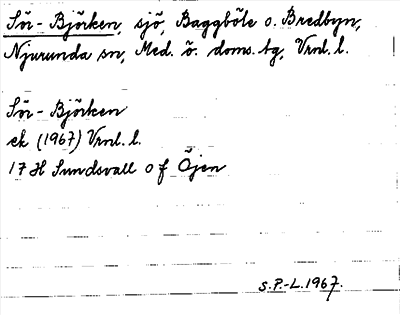 Sör-Björken, sjö, Baggböle o. Bredbyn,
Njurunda sn, Med. ö. doms. tg, Vrnl. l.
Sör-Björken
ek (1967) Vrnl. l.
17 H Sundsvall 0 f Öjen
S.P.-L. 1967.